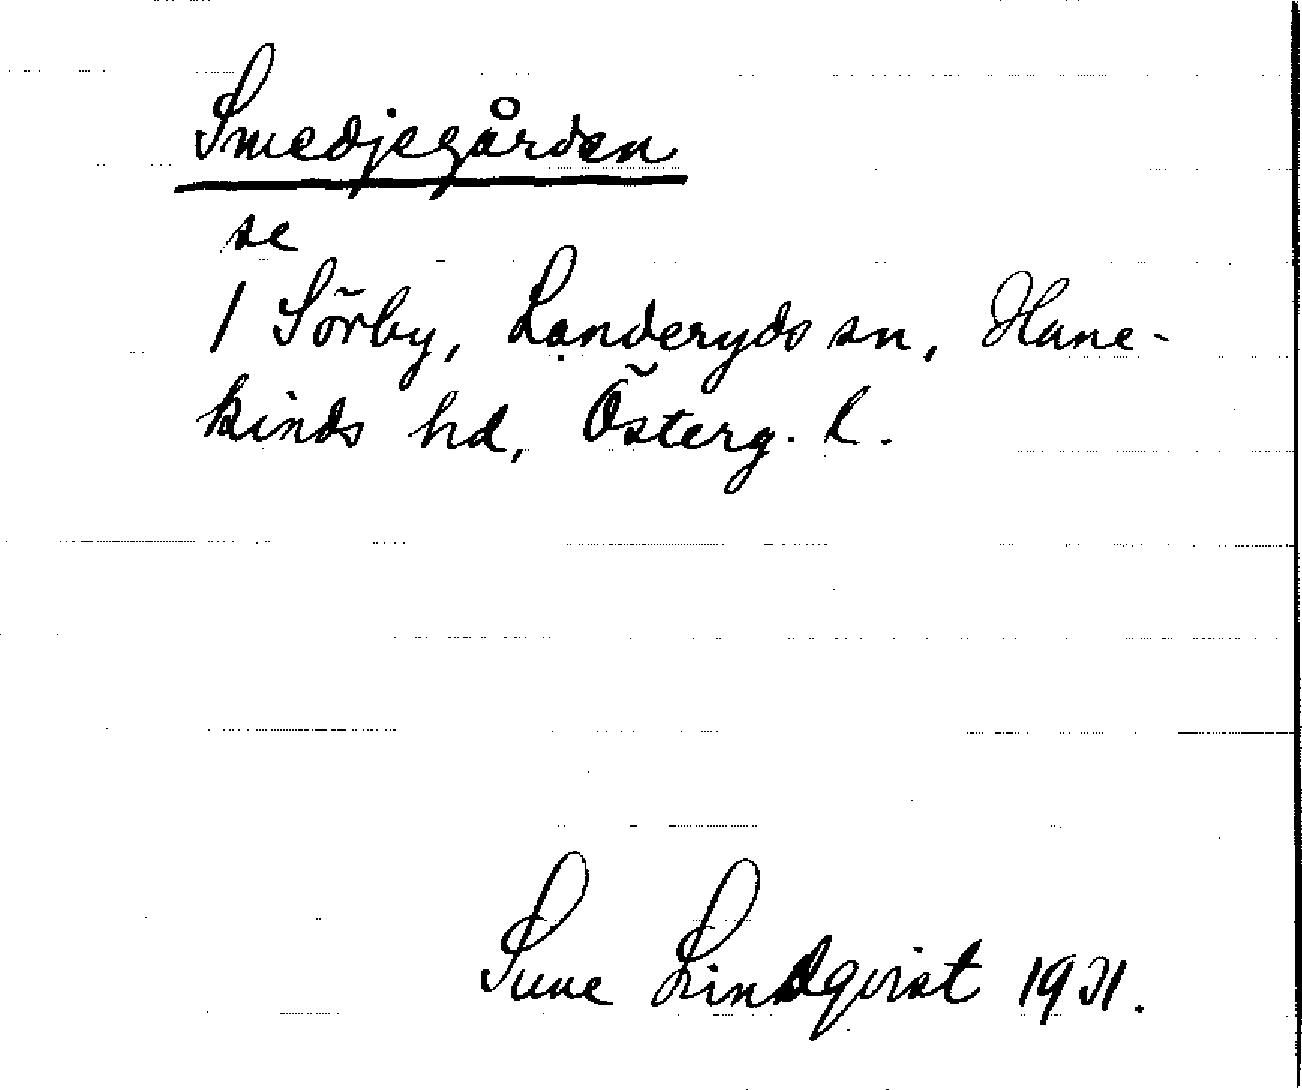 Smedjegården
se
1 Sörby, Landeryds sn, Hane-
kinds hd, Österg. l.
Sune Lindqvist 1931.